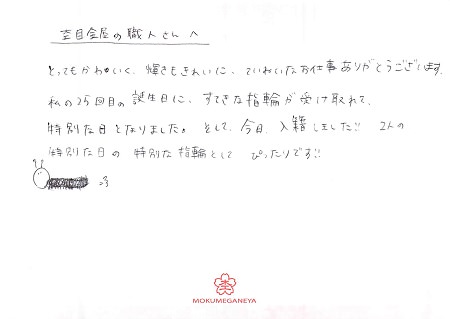 杢目金屋の職人さんへ
とってもかわいく、輝きもきれいに、ていねいなお仕事ありがとうございます。
私の25回目の誕生日に、すてきな指輪が受け取れて、
特別な日となりました。そして、今日、入籍しました!! 2人の
特別な日の特別な指輪として ぴったりです!!
MOKUMEGANEYA